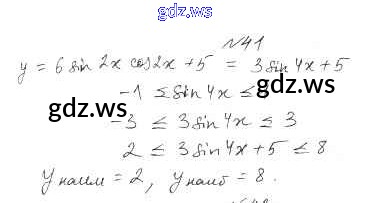 gdz.ws
№41
y = 6 sin 2x cos 2x + 5 = 3 sin 4x + 5
-1 ≤ sin 4x ≤
gdz.ws
gdz.ws
-3 ≤ 3 sin 4x ≤ 3
2 ≤ 3 sin 4x + 5 ≤ 8
y наим = 2, y наиб = 8.